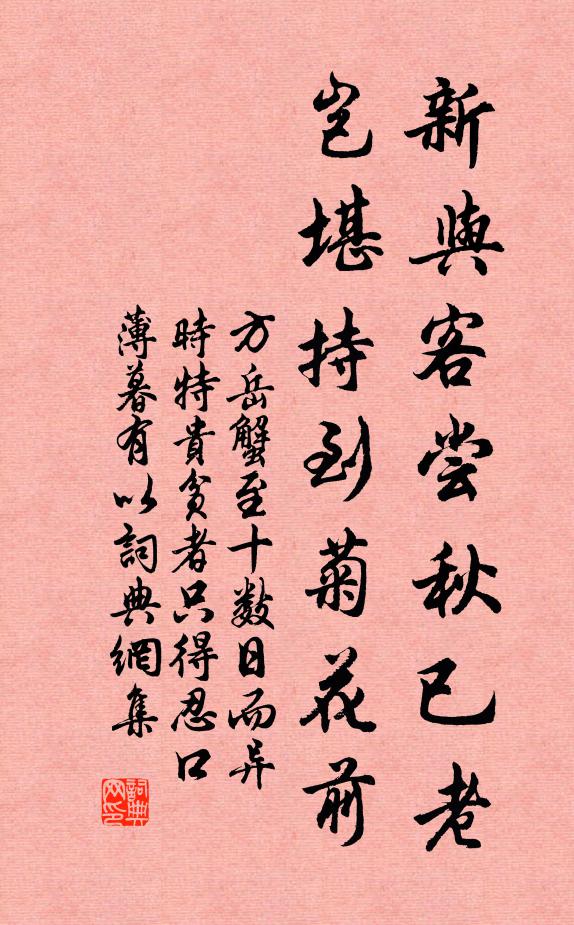 新與客尝秋已老
岂堪持到菊花前
方岳蟹至十数日而异
時特貴貧者只得忍口
薄暮有以詞典網集
詞典
网印